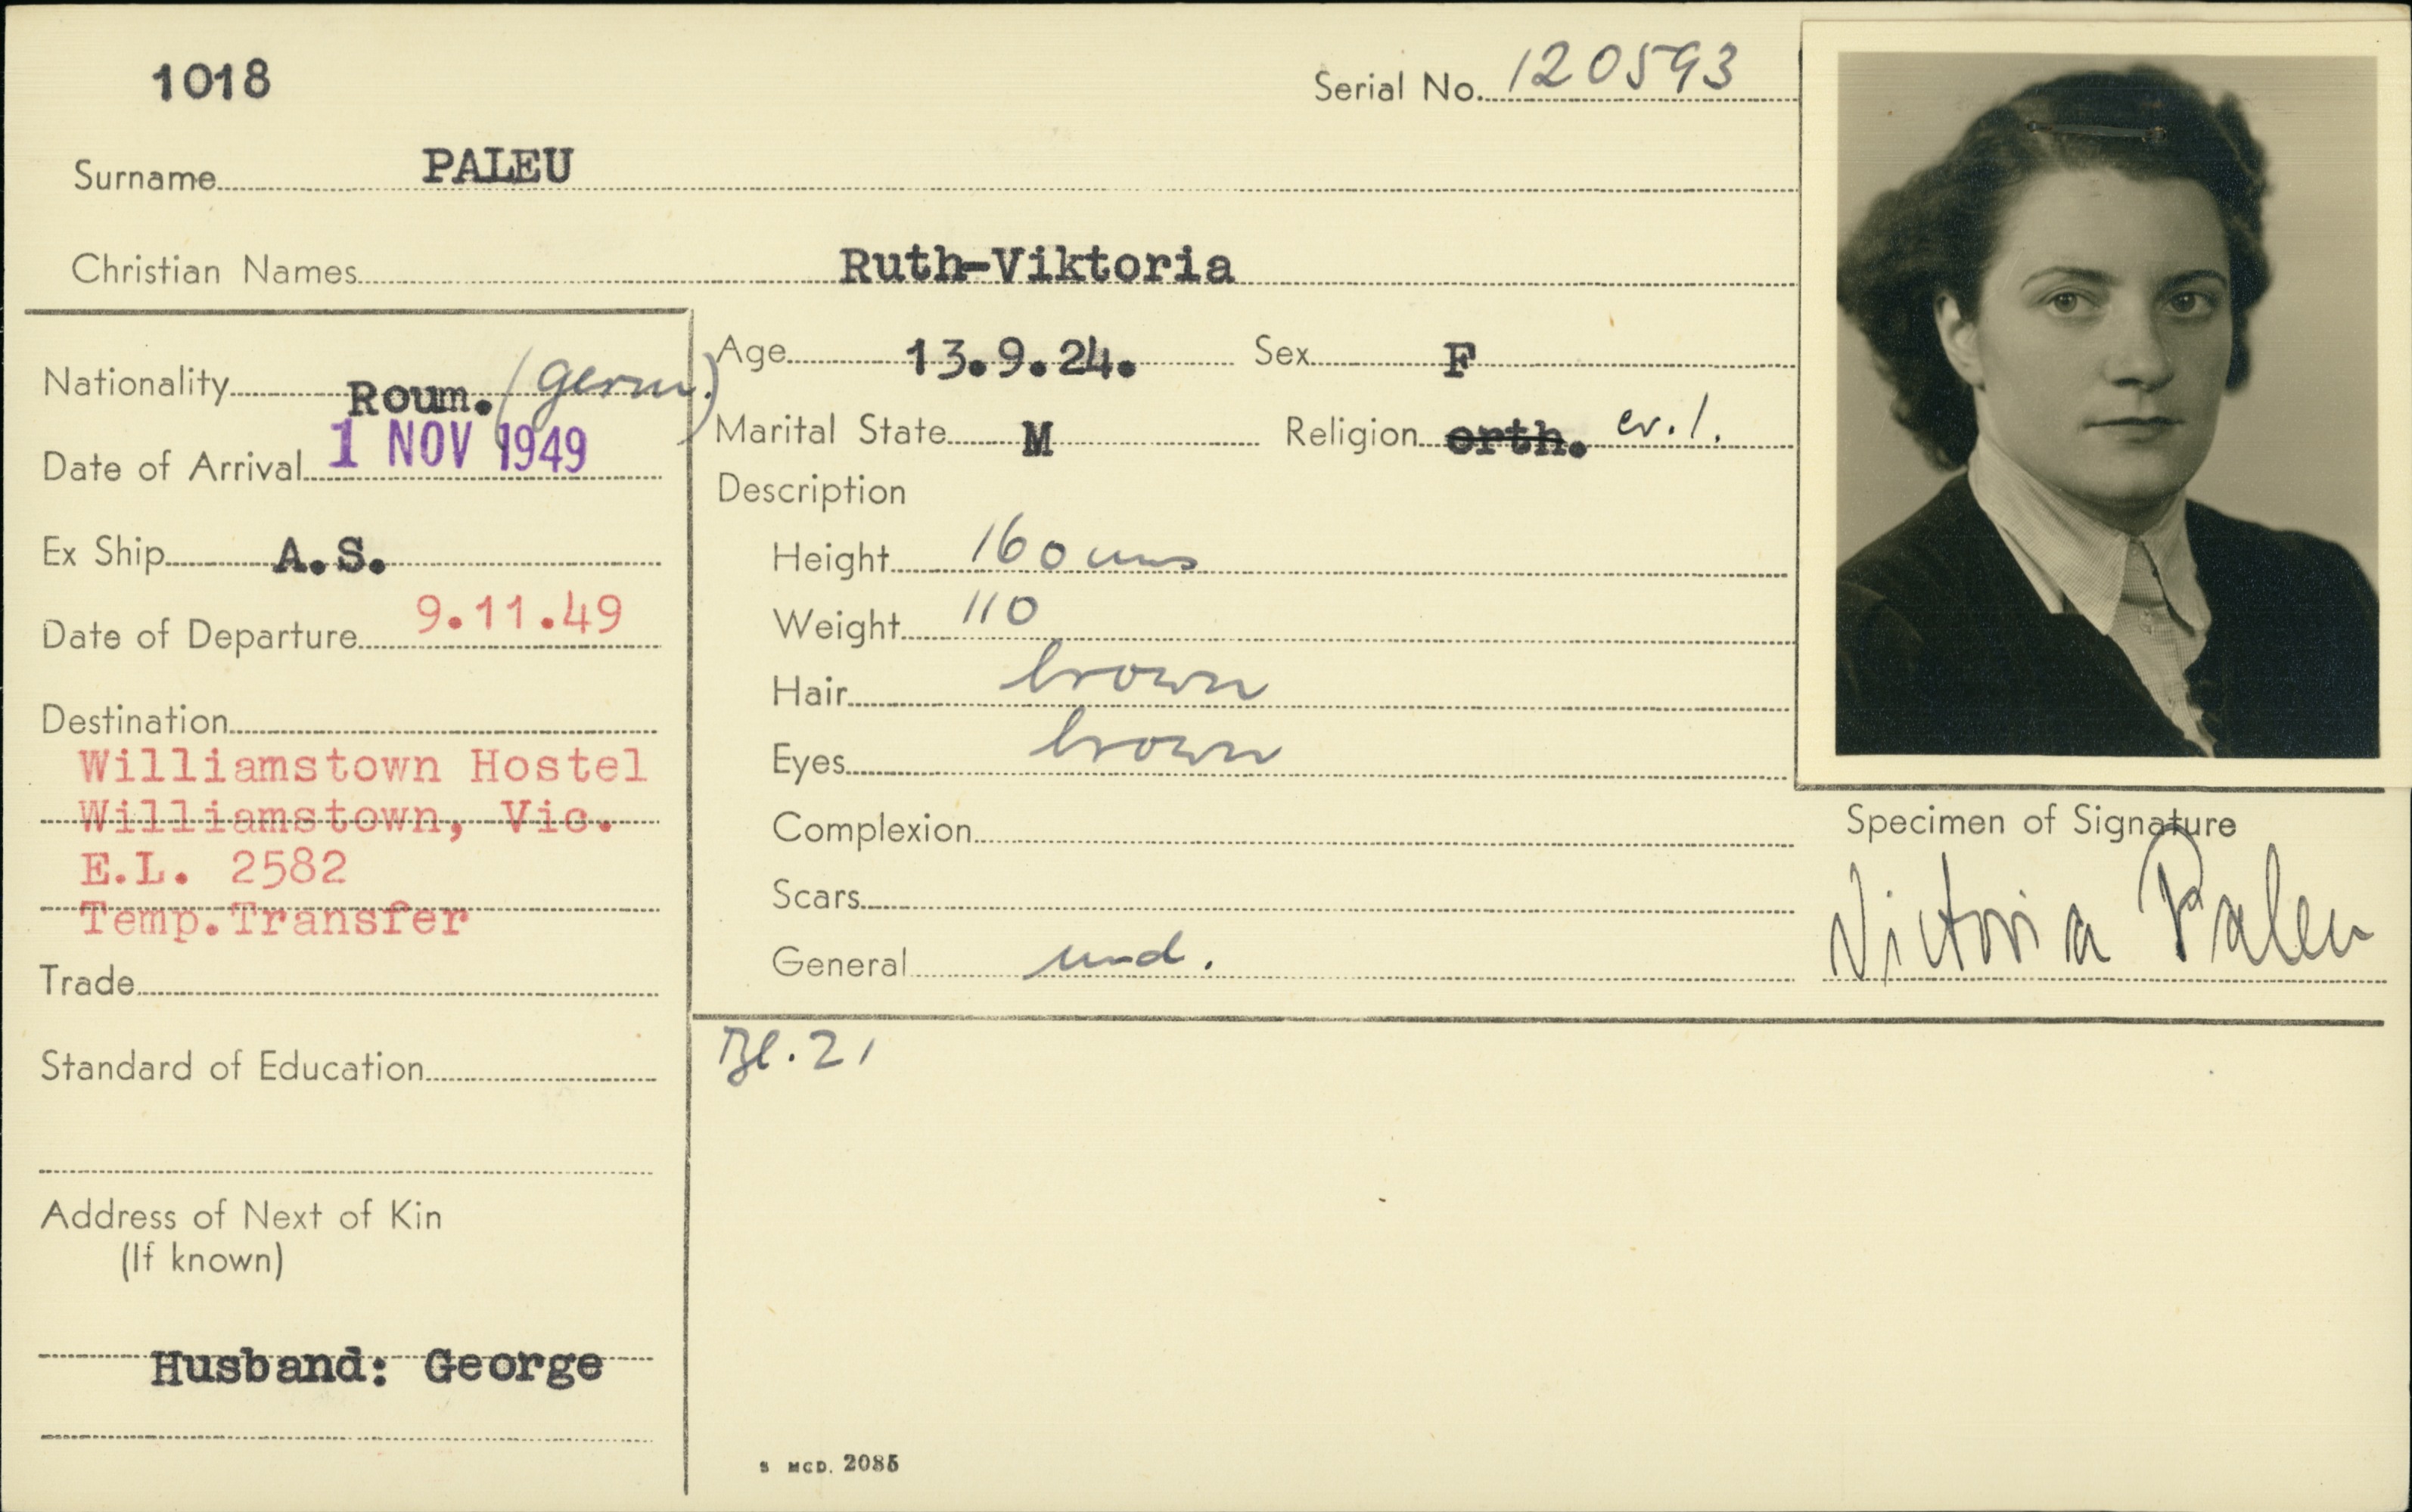 1018
Serial No. 120593
Surname PALEU
Christian Names Ruth-Viktoria
Nationality Roum. (germ.)
Date of Arrival 1 NOV 1949
Ex Ship A.S.
Date of Departure 9.11.49
Destination
Williamstown Hostel
Williamstown, Vic.
E.L. 2582
Temp.Transfer
Trade
Standard of Education
Address of Next of Kin
(If known)
Husband: George
Age 13.9.24. Sex F
Marital State M Religion orth. ev. l.
Description
Height 160 cms
Weight 110
Hair brown
Eyes brown
Complexion
Scars
General und.
Bl. 21
S MCD. 2085
Specimen of Signature
Victoria Paleu